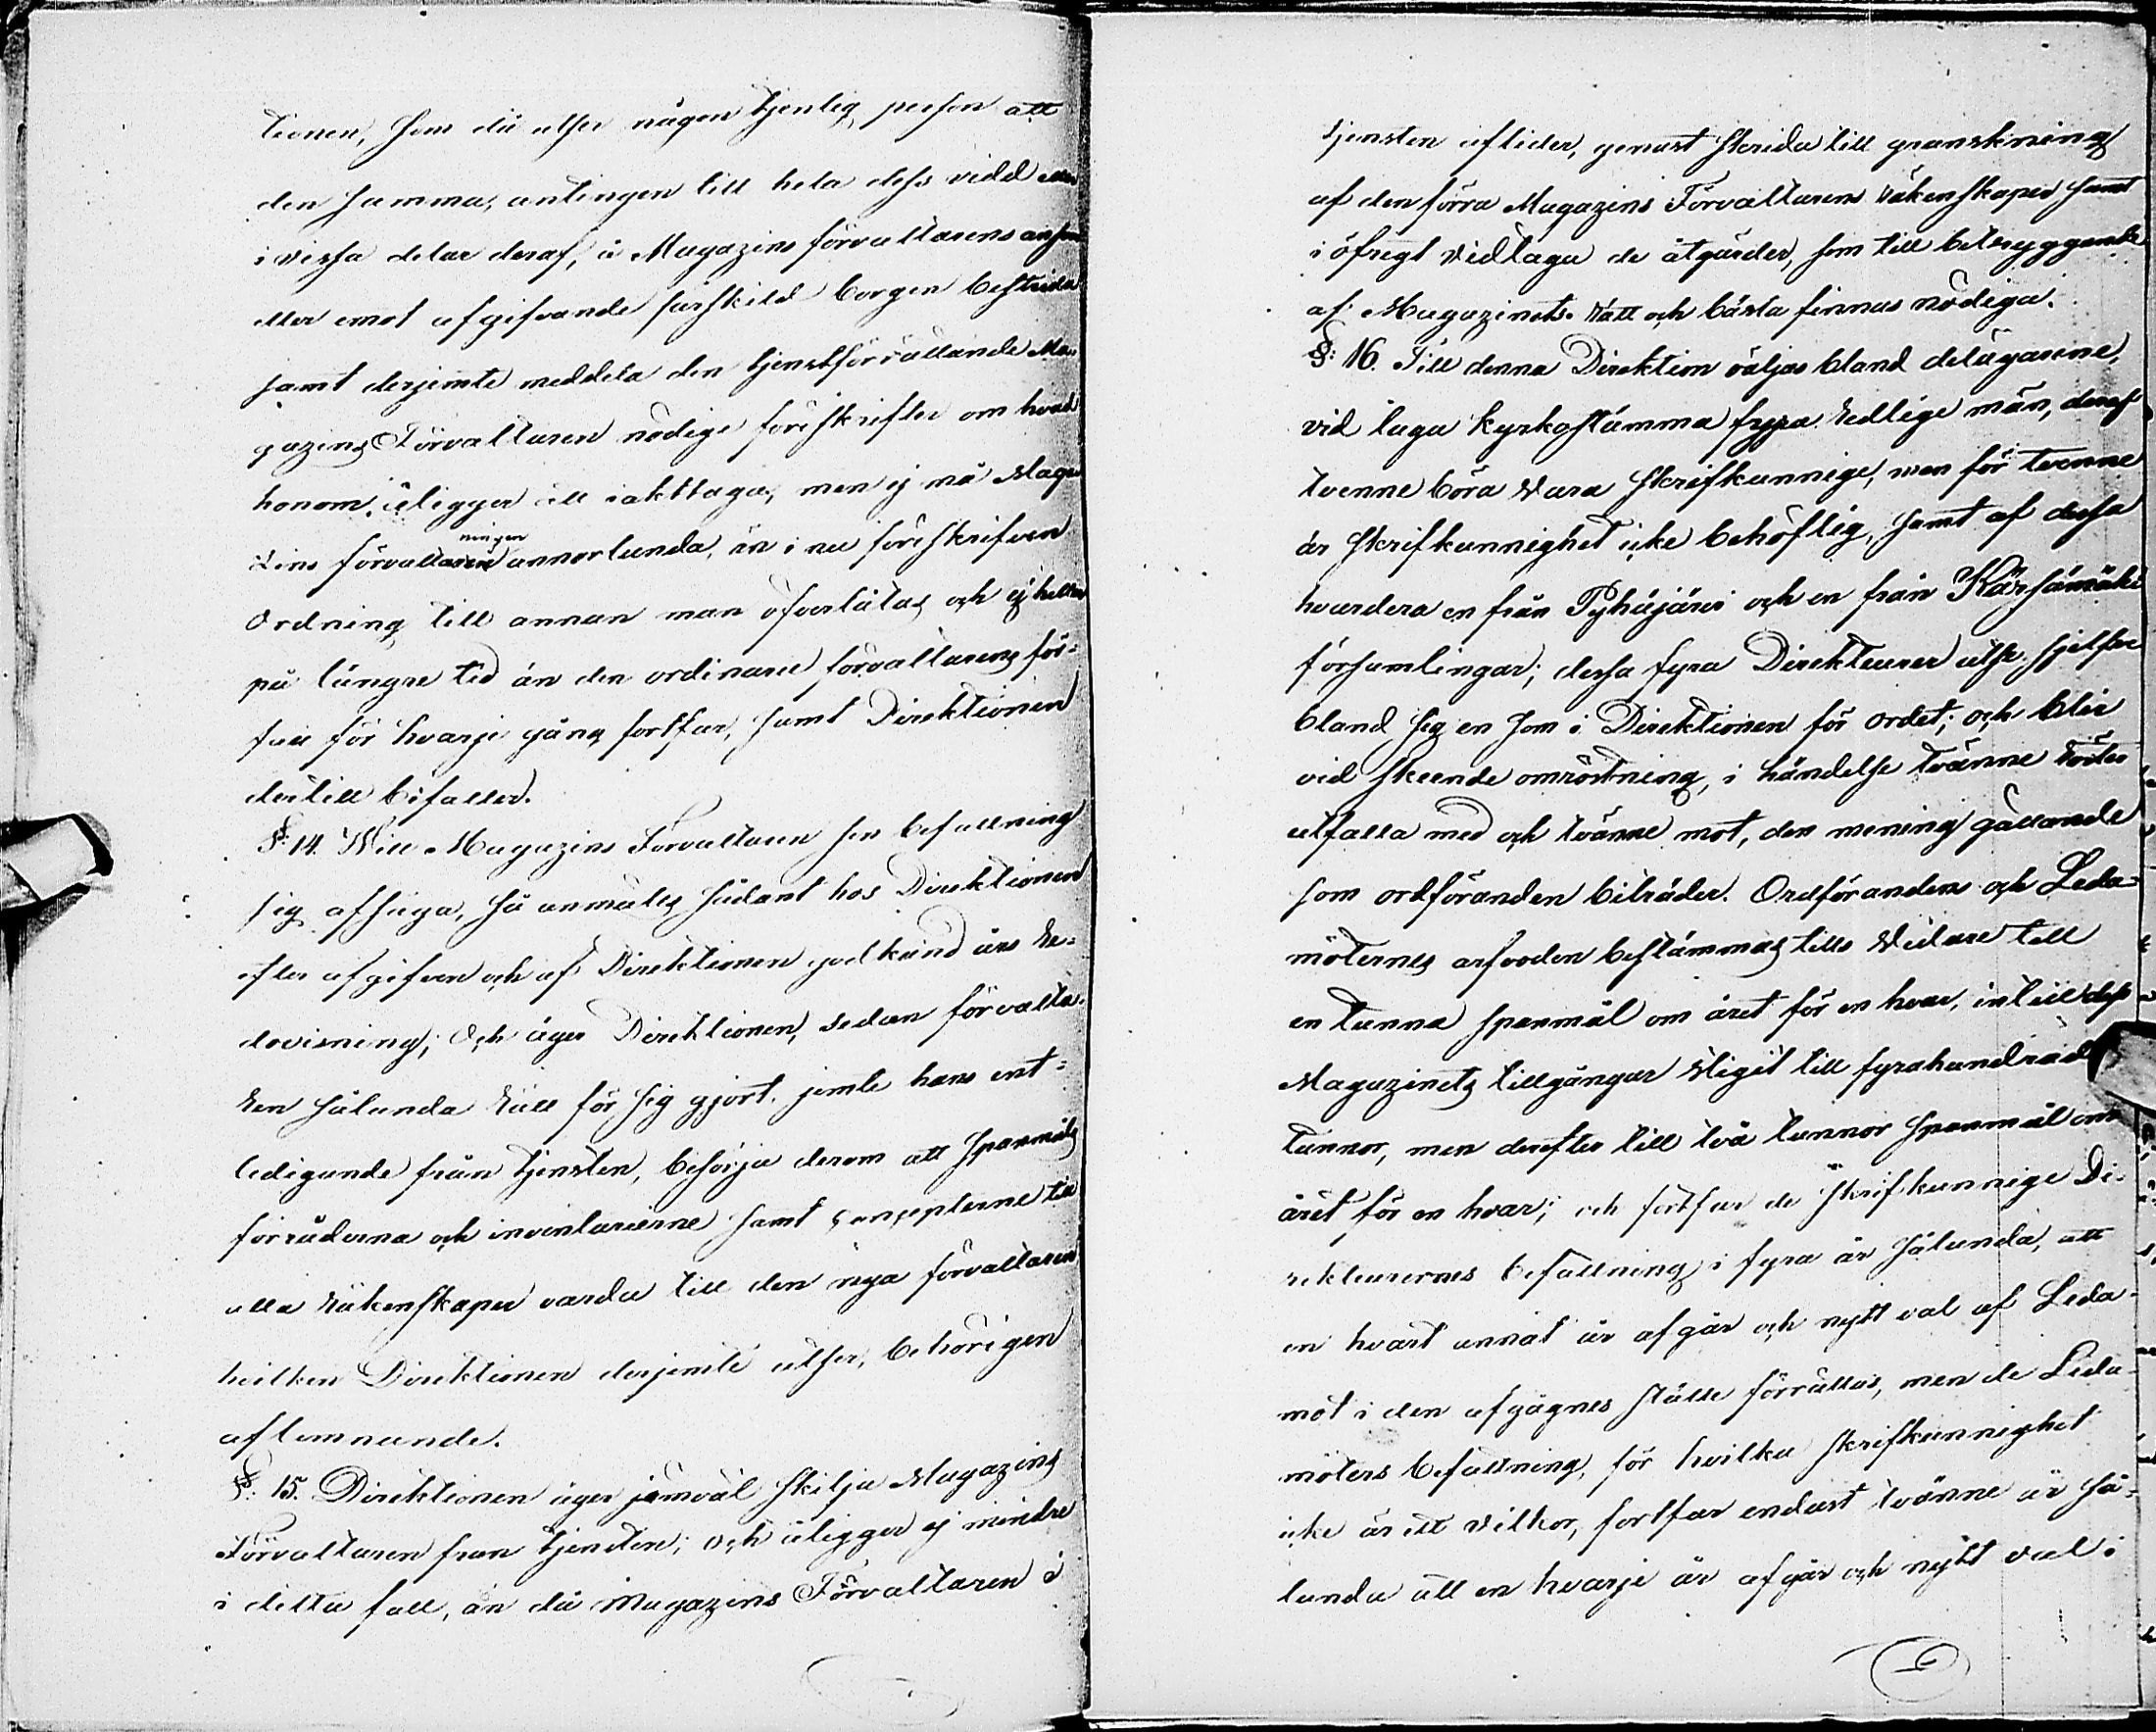 tionen, som då utser någon tjenlig person att
den samma, antingen till hela dess vidd eller
i vissa delar deraf, å Magazins förvaltarens ansvar
eller emot afgifvande särskild borgen bestrida
samt derjemte meddela den tjenstförrättande Ma-
gazins Förvaltaren nödige föreskrifter om hvad
honom åligger att iakttaga, men ej må Maga
zins förvaltningen annorlunda, än i nu föreskrifven
Ordning till annan man öfverlåtas och ej heller
på längre tid än den ordinarie förvaltarens för-
fall för hvarje gång fortfar, samt Direktionen
dertill bifaller.
§: 14. Will Magazins Förvaltaren sin befattning
sig afsäga, så anmäles sådant hos Direktionen
efter afgifven och af Direktionen godkänd års Re-
dovisning; Och äger Direktionen, sedan förvalta-
ren sålunda Rätt för sig gjort, jemte hans ent-
ledigande från tjensten, besörja derom att Spanmåls
förråderna och inventarierne samt concepterne till
alla Räkenskaper varda till den nya förvaltaren
hvilken Direktionen derjemte utser, behörigen
aflemnande.
§: 15. Direktionen äger jemväl skilja Magazins
Förvaltaren från tjensten; och åligger ej mindre
i detta fall, än då Magazins Förvaltaren i
tjensten aflider, genast skrida till granskning
af den förra Magazins Förvaltarens Räkenskaper samt
i öfrigt vidtaga de åtgärder, som till betryggande
af Magazinets Rätt och bästa finnas nödiga.
§: 16. Till denna Direktion väljas bland delägarene,
vid laga kyrkostämma fyra Redlige män, deraf
tvenne böra vara Skrifkunnige, men för tvenne
är Skrifkunnighet icke behöflig, samt af dessa
hvardera en från Pyhäjärvi och en från Kärsämäki
församlingar; dessa fyra Direkteurer utse sjelfve
bland sig en som i Direktionen för ordet; och blir
vid skeende omröstning, i händelse tvänne röster
utfalla med och tvänne mot, den mening gällande
som ordföranden biträder. Ordförandens och Leda-
möternes arfvoden bestämmas tills Vidare till
en tunna spanmål om året för en hvar, intill dess
Magazinets tillgångar stigit till fyrahundrade
tunnor, men derefter till två tunnor spanmål om
året för en hvar; och fortfar de Skrifkunnige Di-
rekteurernes befattning i fyra år sålunda, att
en hvart annat år afgår och nytt val af Leda-
mot i den afgågnes ställe förrättas, men de Leda-
möters befattning, för hvilka skrifkunnighet
icke är ett vilkor, fortfar endast tvänne år så-
lunda att en hvarje år afgår och nytt val i